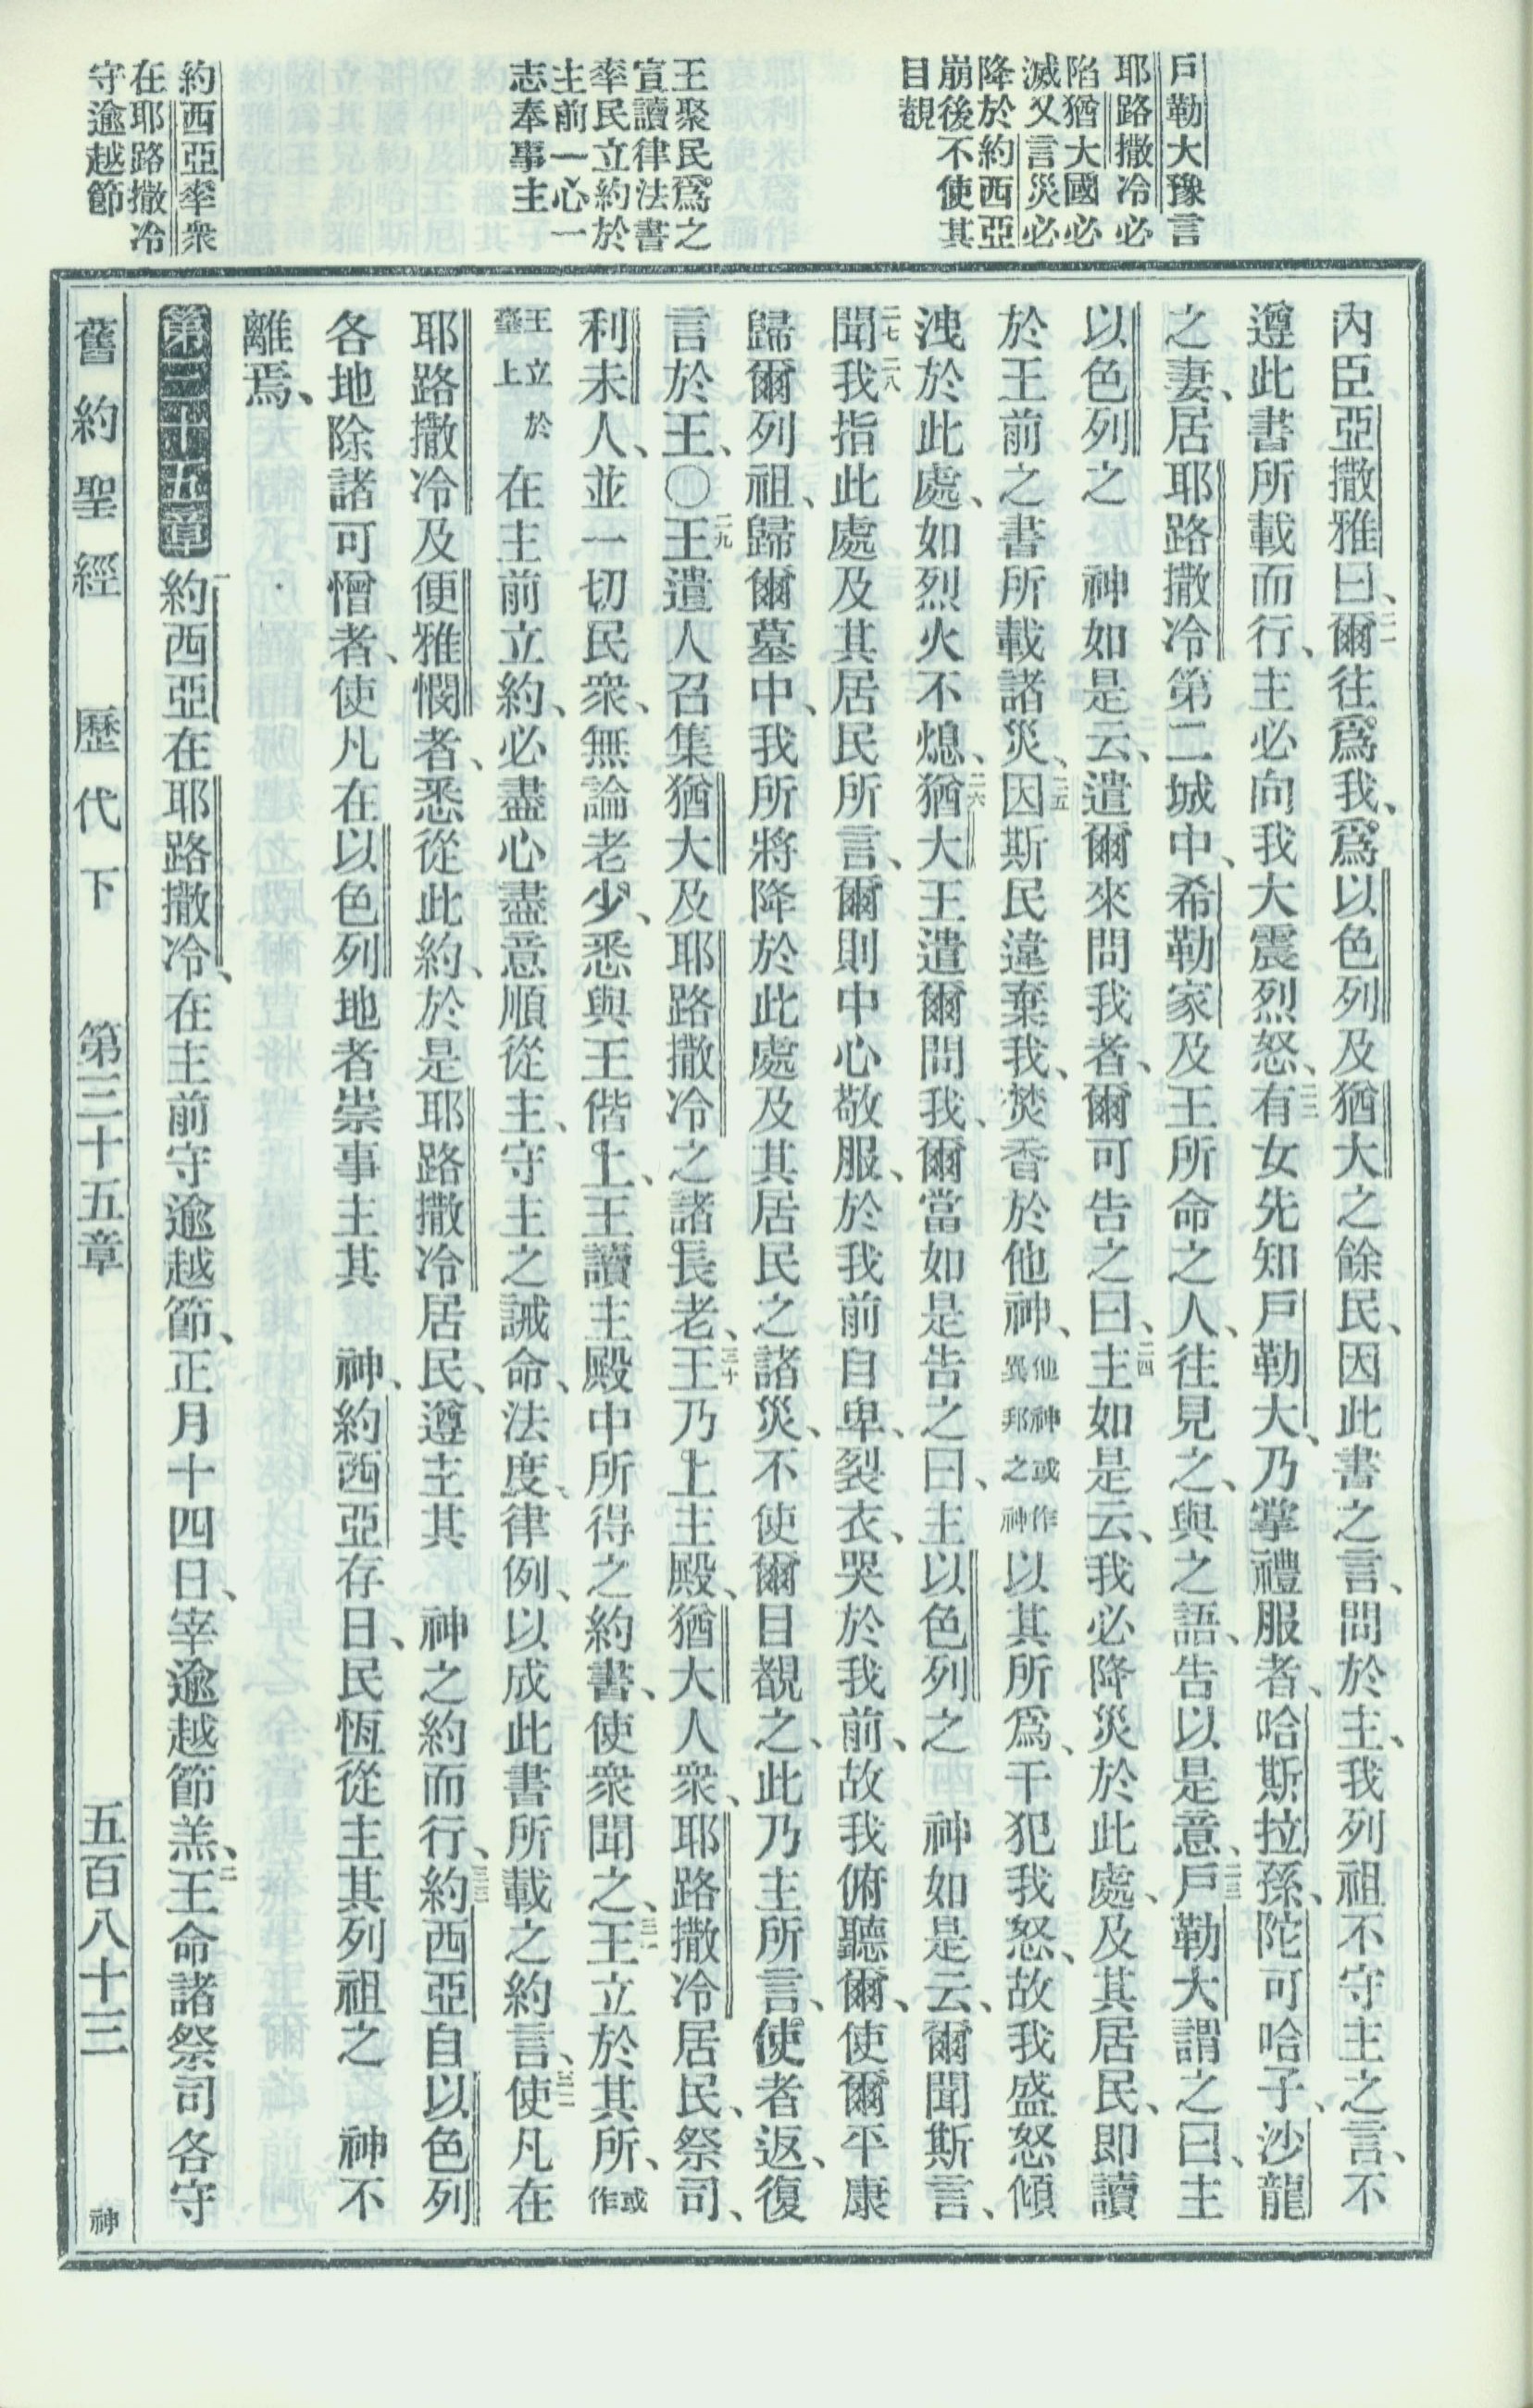 戶勒大豫言
耶路撒冷必
陷猶大國必
滅又言災必
降於約西亞
崩後不使其
目覩
王聚民爲之
宣讀律法書
率民立約於
主前一心一
志奉事主
約西亞率衆
在耶路撒冷
守逾越節
內臣亞撒雅曰、二一爾往爲我、爲以色列及猶大之餘民、因此書之言、問於主、我列祖不守主之言、不
遵此書所載而行、主必向我大震烈怒、二二有女先知戶勒大、乃掌禮服者、哈斯拉孫、陀可哈子、沙龍
之妻、居耶路撒冷第二城中、希勒家及王所命之人、往見之、與之語、告以是意、二三戶勒大謂之曰、主
以色列之　神如是云、遣爾來問我者、爾可告之曰、二四主如是云、我必降災於此處、及其居民、即讀
於王前之書所載諸災、二五因斯民違棄我、焚香於他神、他神或作異邦之神以其所爲、干犯我怒、故我盛怒傾
洩於此處、如烈火不熄、二六猶大王遣爾問我、爾當如是告之曰、主以色列之　神如是云、爾聞斯言、
二七二八聞我指此處及其居民所言、爾則中心敬服、於我前自卑、裂衣、哭於我前、故我俯聽爾、使爾平康
歸爾列祖、歸爾墓中、我所將降於此處及其居民之諸災、不使爾目覩之、此乃主所言、使者返、復
言於王、○二九王遣人召集猶大及耶路撒冷之諸長老、三十王乃上主殿、猶大人衆、耶路撒冷居民、祭司、
利未人、並一切民衆、無論老少、悉與王偕上、王讀主殿中所得之約書、使衆聞之、三一王立於其所、或作
王立於臺上在主前立約、必盡心盡意順從主、守主之誡命、法度、律例、以成此書所載之約言、三二使凡在
耶路撒冷及便雅憫者、悉從此約、於是耶路撒冷居民、遵主其　神之約而行、三三約西亞自以色列
各地除諸可憎者、使凡在以色列地者崇事主其　神、約西亞存日、民恆從主其列祖之　神不
離焉、
第三十五章　一約西亞在耶路撒冷、在主前守逾越節、正月十四日、宰逾越節羔、二王命諸祭司各守
舊約聖經　歷代下　第三十五章　五百八十三　神